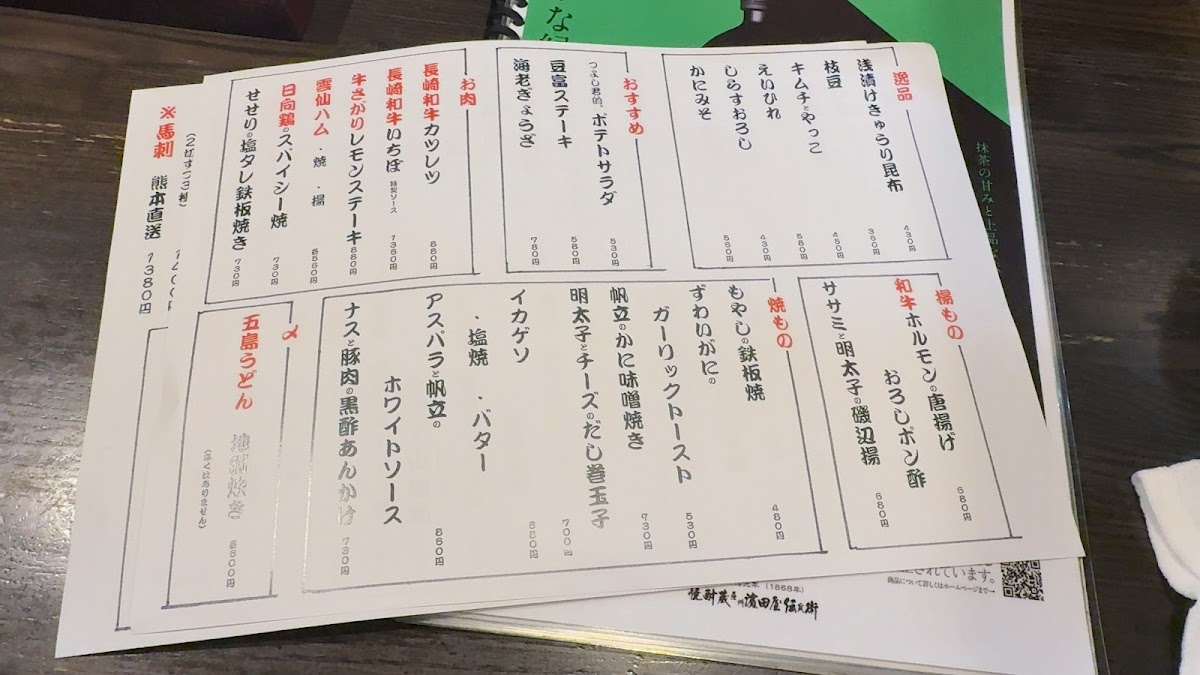 逸品
浅漬けきゅうり昆布 430円
枝豆 360円
キムチとやっこ 480円
えいひれ 580円
しらすおろし 430円
かにみそ 560円
おすすめ
つよし君的、ポテトサラダ 530円
豆富ステーキ 580円
海老ぎょうざ 780円
お肉
長崎和牛カツレツ 880円
長崎和牛いちぼ 特製ソース 1360円
牛さがりレモンステーキ 880円
雲仙ハム ・焼 ・揚 各560円
日向鶏のスパイシー焼 730円
せせりの塩タレ鉄板焼き 730円
揚もの
和牛ホルモンの唐揚げ
おろしポン酢 680円
ササミと明太子の磯辺揚 680円
焼もの
もやしの鉄板焼 480円
ずわいがにの
ガーリックトースト 530円
帆立のかに味噌焼き 730円
明太子とチーズのだし巻玉子 700円
イカゲソ
・塩焼 ・バター 680円
アスパラと帆立の
ホワイトソース 860円
ナスと豚肉の黒酢あんかけ 730円
〆
五島うどん
地獄炊き
(辛くはありません)
(2切ずつ3種)
※馬刺 熊本直送 1380円
抹茶の甘みと上品
(1868年)
濵田屋伝兵衛
されています。
商品について詳しくはホームページまで→